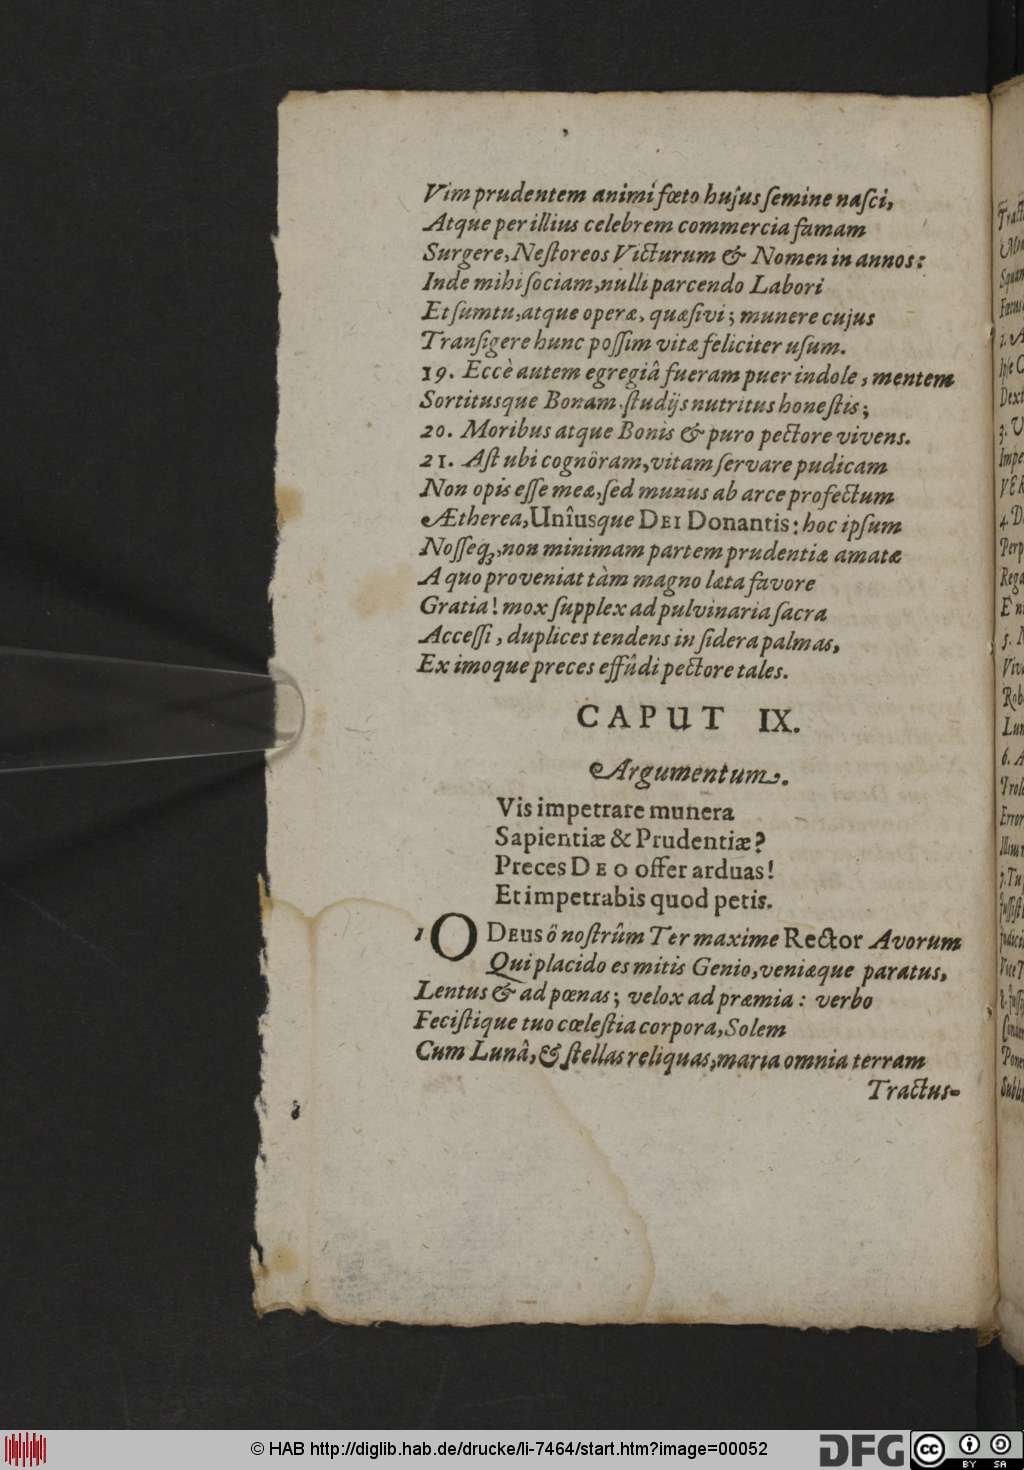 Vim prudentem animi fœto hujus ſemine naſci,
Atque per illius celebrem commercia famam
Surgere, Neſtoreos Victurum & Nomen in annos:
Inde mihi ſociam, nulli parcendo Labori
Et ſumtu, atque operæ, quæſivi; munere cujus
Tranſigere hunc poſſim vitæ feliciter uſum.
19. Eccè autem egregiâ fueram puer indole, mentem
Sortitusque Bonam ſtudijs nutritus honeſtis;
20. Moribus atque Bonis & puro pectore vivens.
21. Aſt ubi cognôram, vitam ſervare pudicam
Non opis eſſe meæ, ſed munus ab arce profectum
Ætherea, Unîusque DEI Donantis: hoc ipſum
Noſſeq́;, non minimam partem prudentiæ amatæ
A quo proveniat tàm magno læta favore
Gratia! mox ſupplex ad pulvinaria ſacra
Acceſſi, duplices tendens in ſidera palmas,
Ex imoque preces effûdi pectore tales.
CAPUT IX.
Argumentum.
Vis impetrare munera
Sapientiæ & Prudentiæ?
Preces DEO offer arduas!
Et impetrabis quod petis.
1 O DEUS ô noſtrûm Ter maxime Rector Avorum
Qui placido es mitis Genio, veniæque paratus,
Lentus & ad pœnas; velox ad præmia: verbo
Feciſtique tuo cœleſtia corpora, Solem
Cum Lunâ, & ſtellas reliquas, maria omnia terram
Tractus-
© HAB http://diglib.hab.de/drucke/li-7464/start.htm?image=00052
DFG
cc BY SA